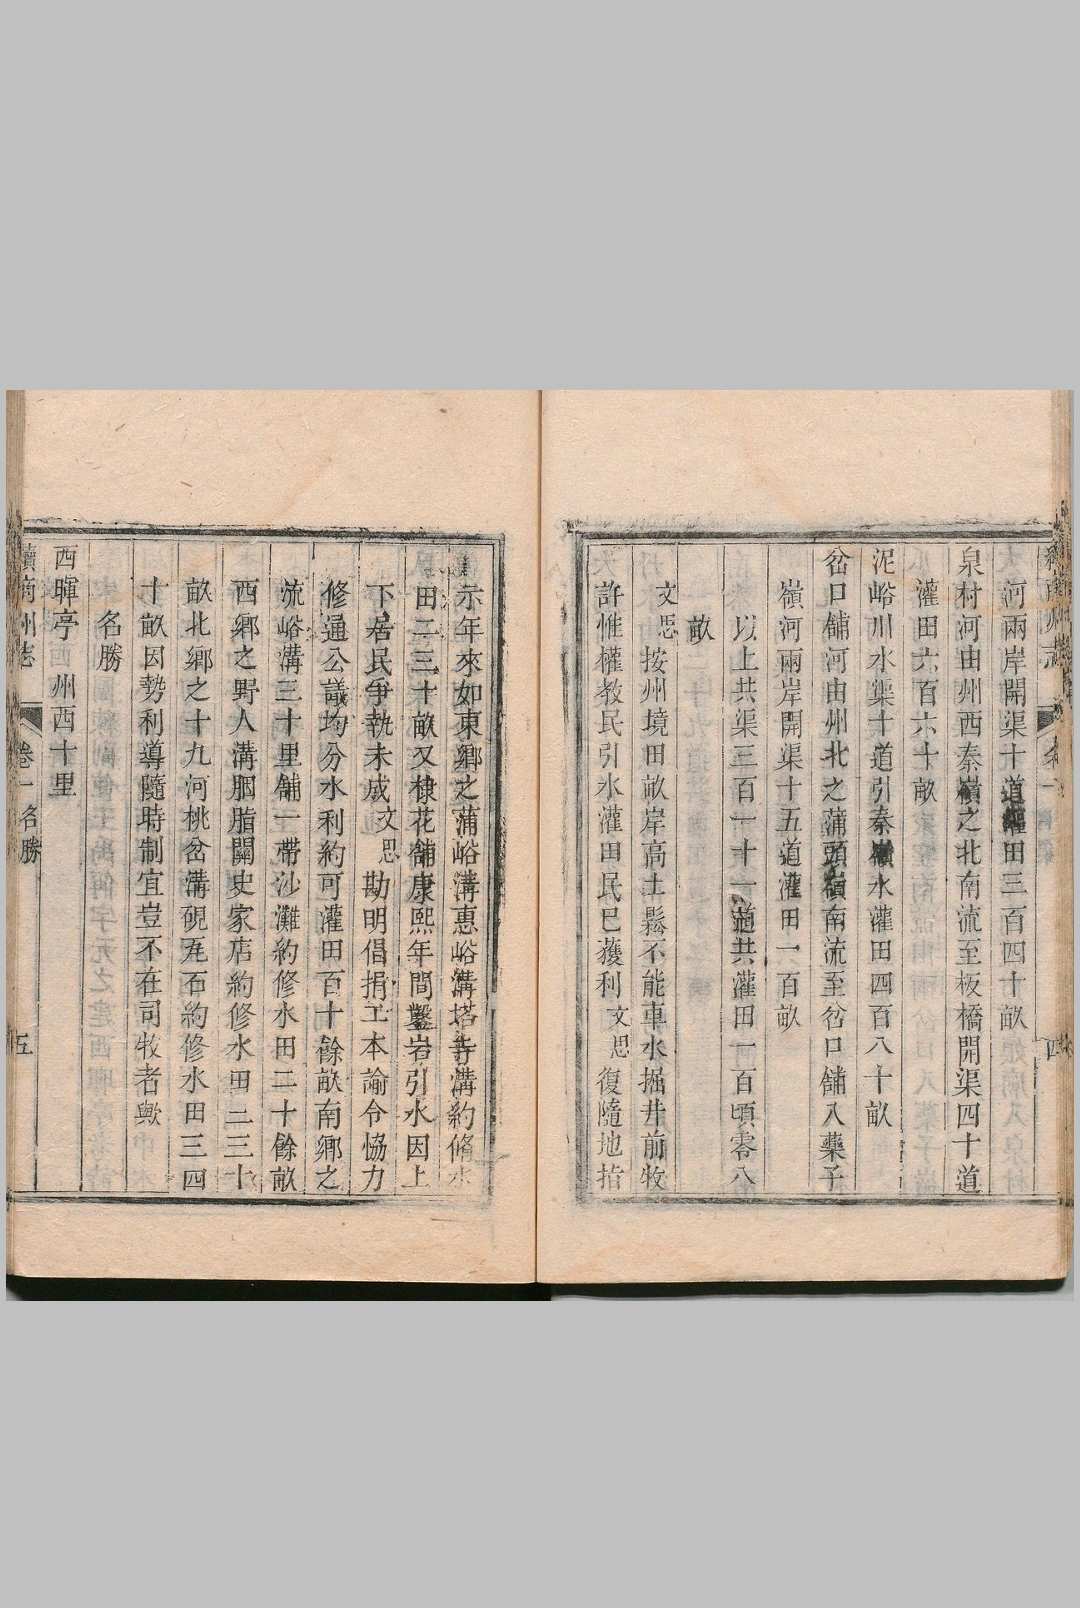 續商州志
卷一
四
河兩岸開渠十道灌田三百四十畝
泉村河由州西秦嶺之北南流至板橋開渠四十道
灌田六百六十畝
泥峪川水渠十道引秦嶺水灌田四百八十畝
岔口舖河由州北之蒲頭嶺南流至岔口舖入藥子
嶺河兩岸開渠十五道灌田一百畝
以上共渠三百一十一道共灌田一百頃零八
畝
文思按州境田畝岸高土鬆不能車水掘井前牧
許惟權教民引水灌田民已獲利文思復隨地指
示年來如東鄉之蒲峪溝惠峪溝塔寺溝約修水
田二三十畝又棣花舖康熙年間鑿岩引水因上
下居民爭執未成文思勘明倡捐工本諭令恊力
修通公議均分水利約可灌田百十餘畝南鄉之
流峪溝三十里舖一帶沙灘約修水田二十餘畝
西鄉之野人溝胭脂關史家店約修水田二三十
畝北鄉之十九河桃岔溝硯瓦石約修水田三四
十畝因勢利導隨時制宜豈不在司牧者歟
名勝
西暉亭州西十里
續商州志
卷一名勝
五